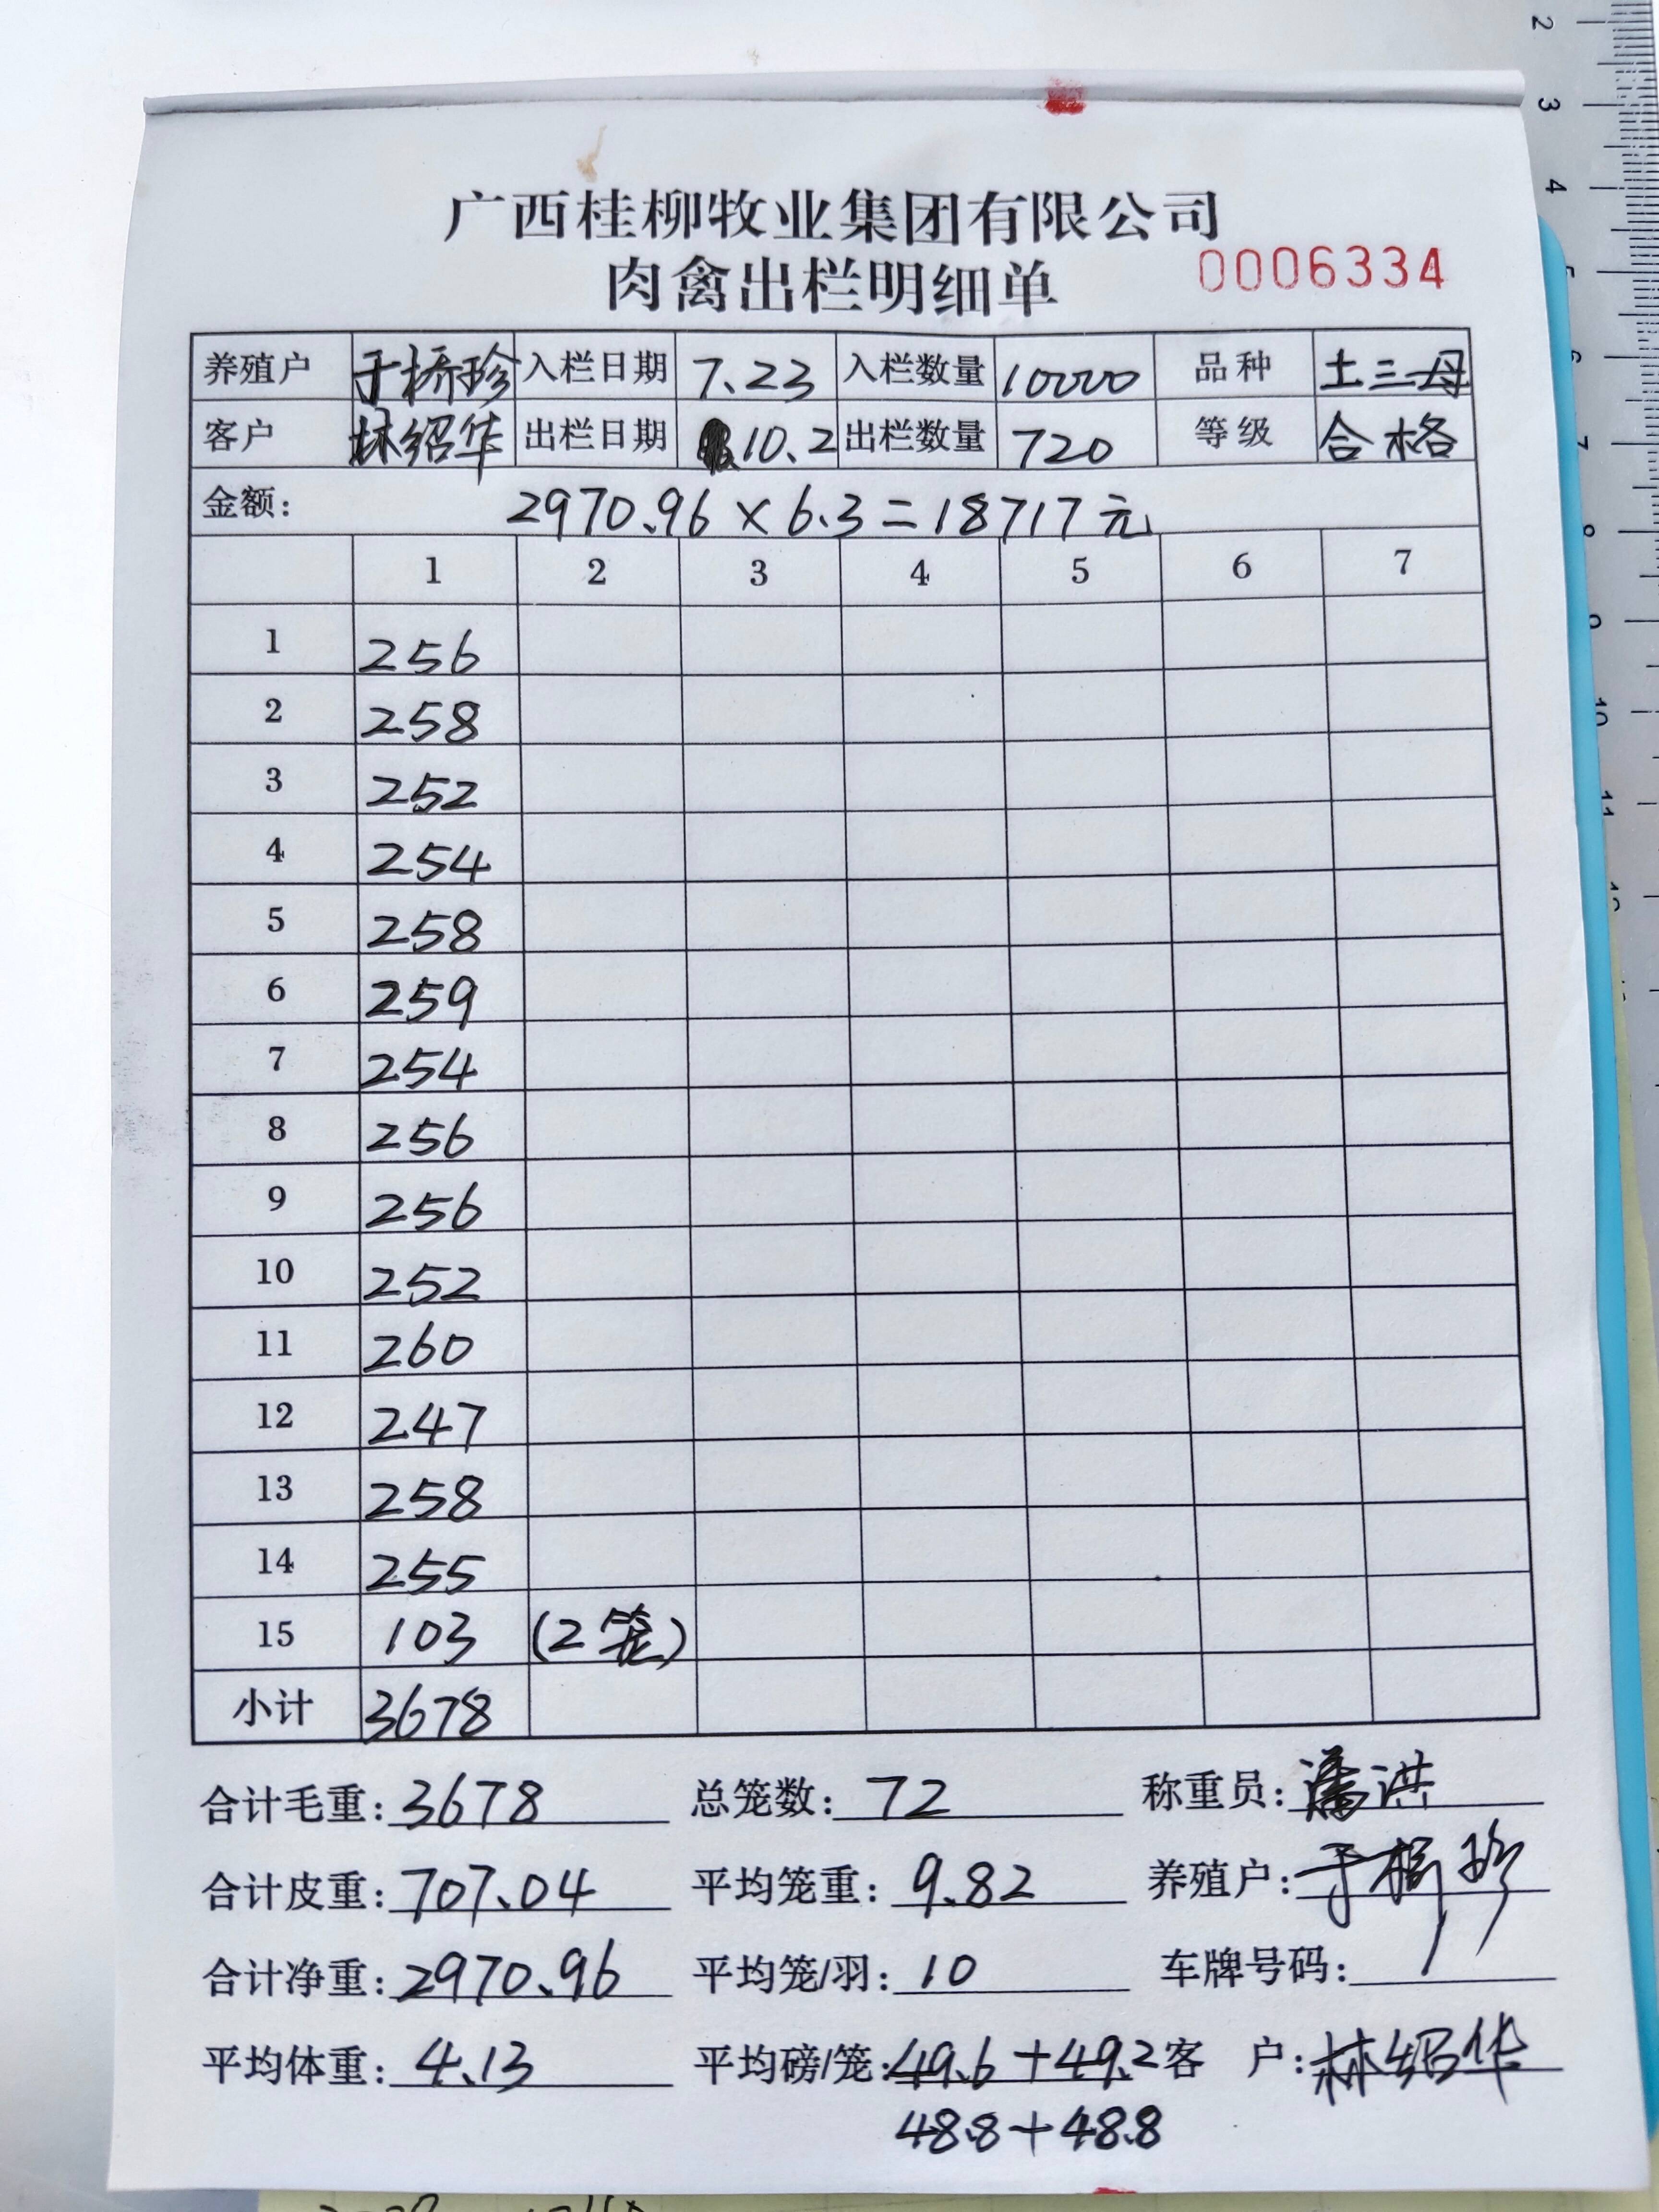 广西桂柳牧业集团有限公司
肉禽出栏明细单 0006334
养殖户 于桥珍 入栏日期 7.23 入栏数量 10000 品种 土三母
客户 林绍华 出栏日期 10.2 出栏数量 720 等级 合格
金额: 2970.96×6.3=18717元
1 2 3 4 5 6 7
1 256
2 258
3 252
4 254
5 258
6 259
7 254
8 256
9 256
10 252
11 260
12 247
13 258
14 255
15 103 (2笼)
小计 3678
合计毛重:3678 总笼数:72 称重员:潘洪
合计皮重:707.04 平均笼重:9.82 养殖户:于桥珍
合计净重:2970.96 平均笼/羽:10 车牌号码:
平均体重:4.13 平均磅/笼:49.6+49.2 客 户:林绍华
48.8+48.8
2
3
4
5
6
7
8
9
10
11